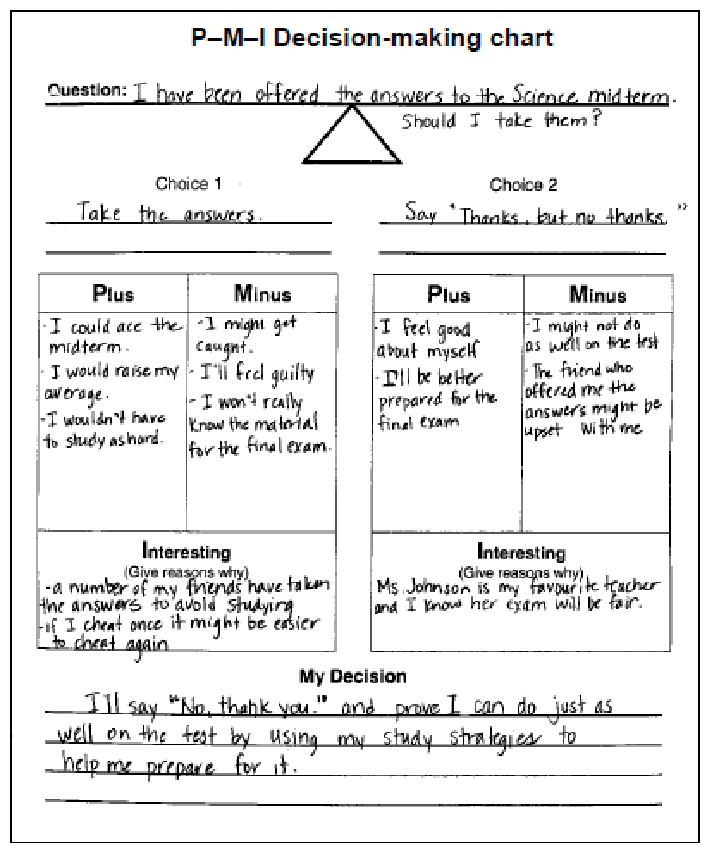 P–M–I Decision-making chart
Question: I have been offered the answers to the Science midterm.
Should I take them?
Choice 1
Take the answers.
Choice 2
Say "Thanks, but no thanks."
Plus
· I could ace the
midterm.
· I would raise my
average.
· I wouldn't have
to study as hard.
Minus
· I might get
caught.
· I'll feel guilty
· I won't really
know the material
for the final exam.
Interesting
(Give reasons why)
- a number of my friends have taken
the answers to avoid studying
- if I cheat once it might be easier
to cheat again
Plus
· I feel good
about myself
· I'll be better
prepared for the
final exam
Minus
· I might not do
as well on the test
· The friend who
offered me the
answers might be
upset with me
Interesting
(Give reasons why)
Ms. Johnson is my favourite teacher
and I know her exam will be fair.
My Decision
I'll say "No, thank you." and prove I can do just as
well on the test by using my study strategies to
help me prepare for it.